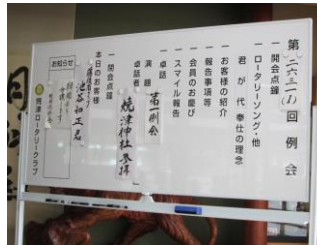 第二六三一(1)回例会
一開会点鐘
一ロータリーソング・他
君が代奉仕の理念
一お客様の紹介
一報告事項等
一会員のお慶び
一スマイル報告
一卓話
演題 第一例会
卓話者 焼津神社参拝
一閉会点鐘
本日のお客様
池谷和正君
お知らせ
焼津ロータリークラブ